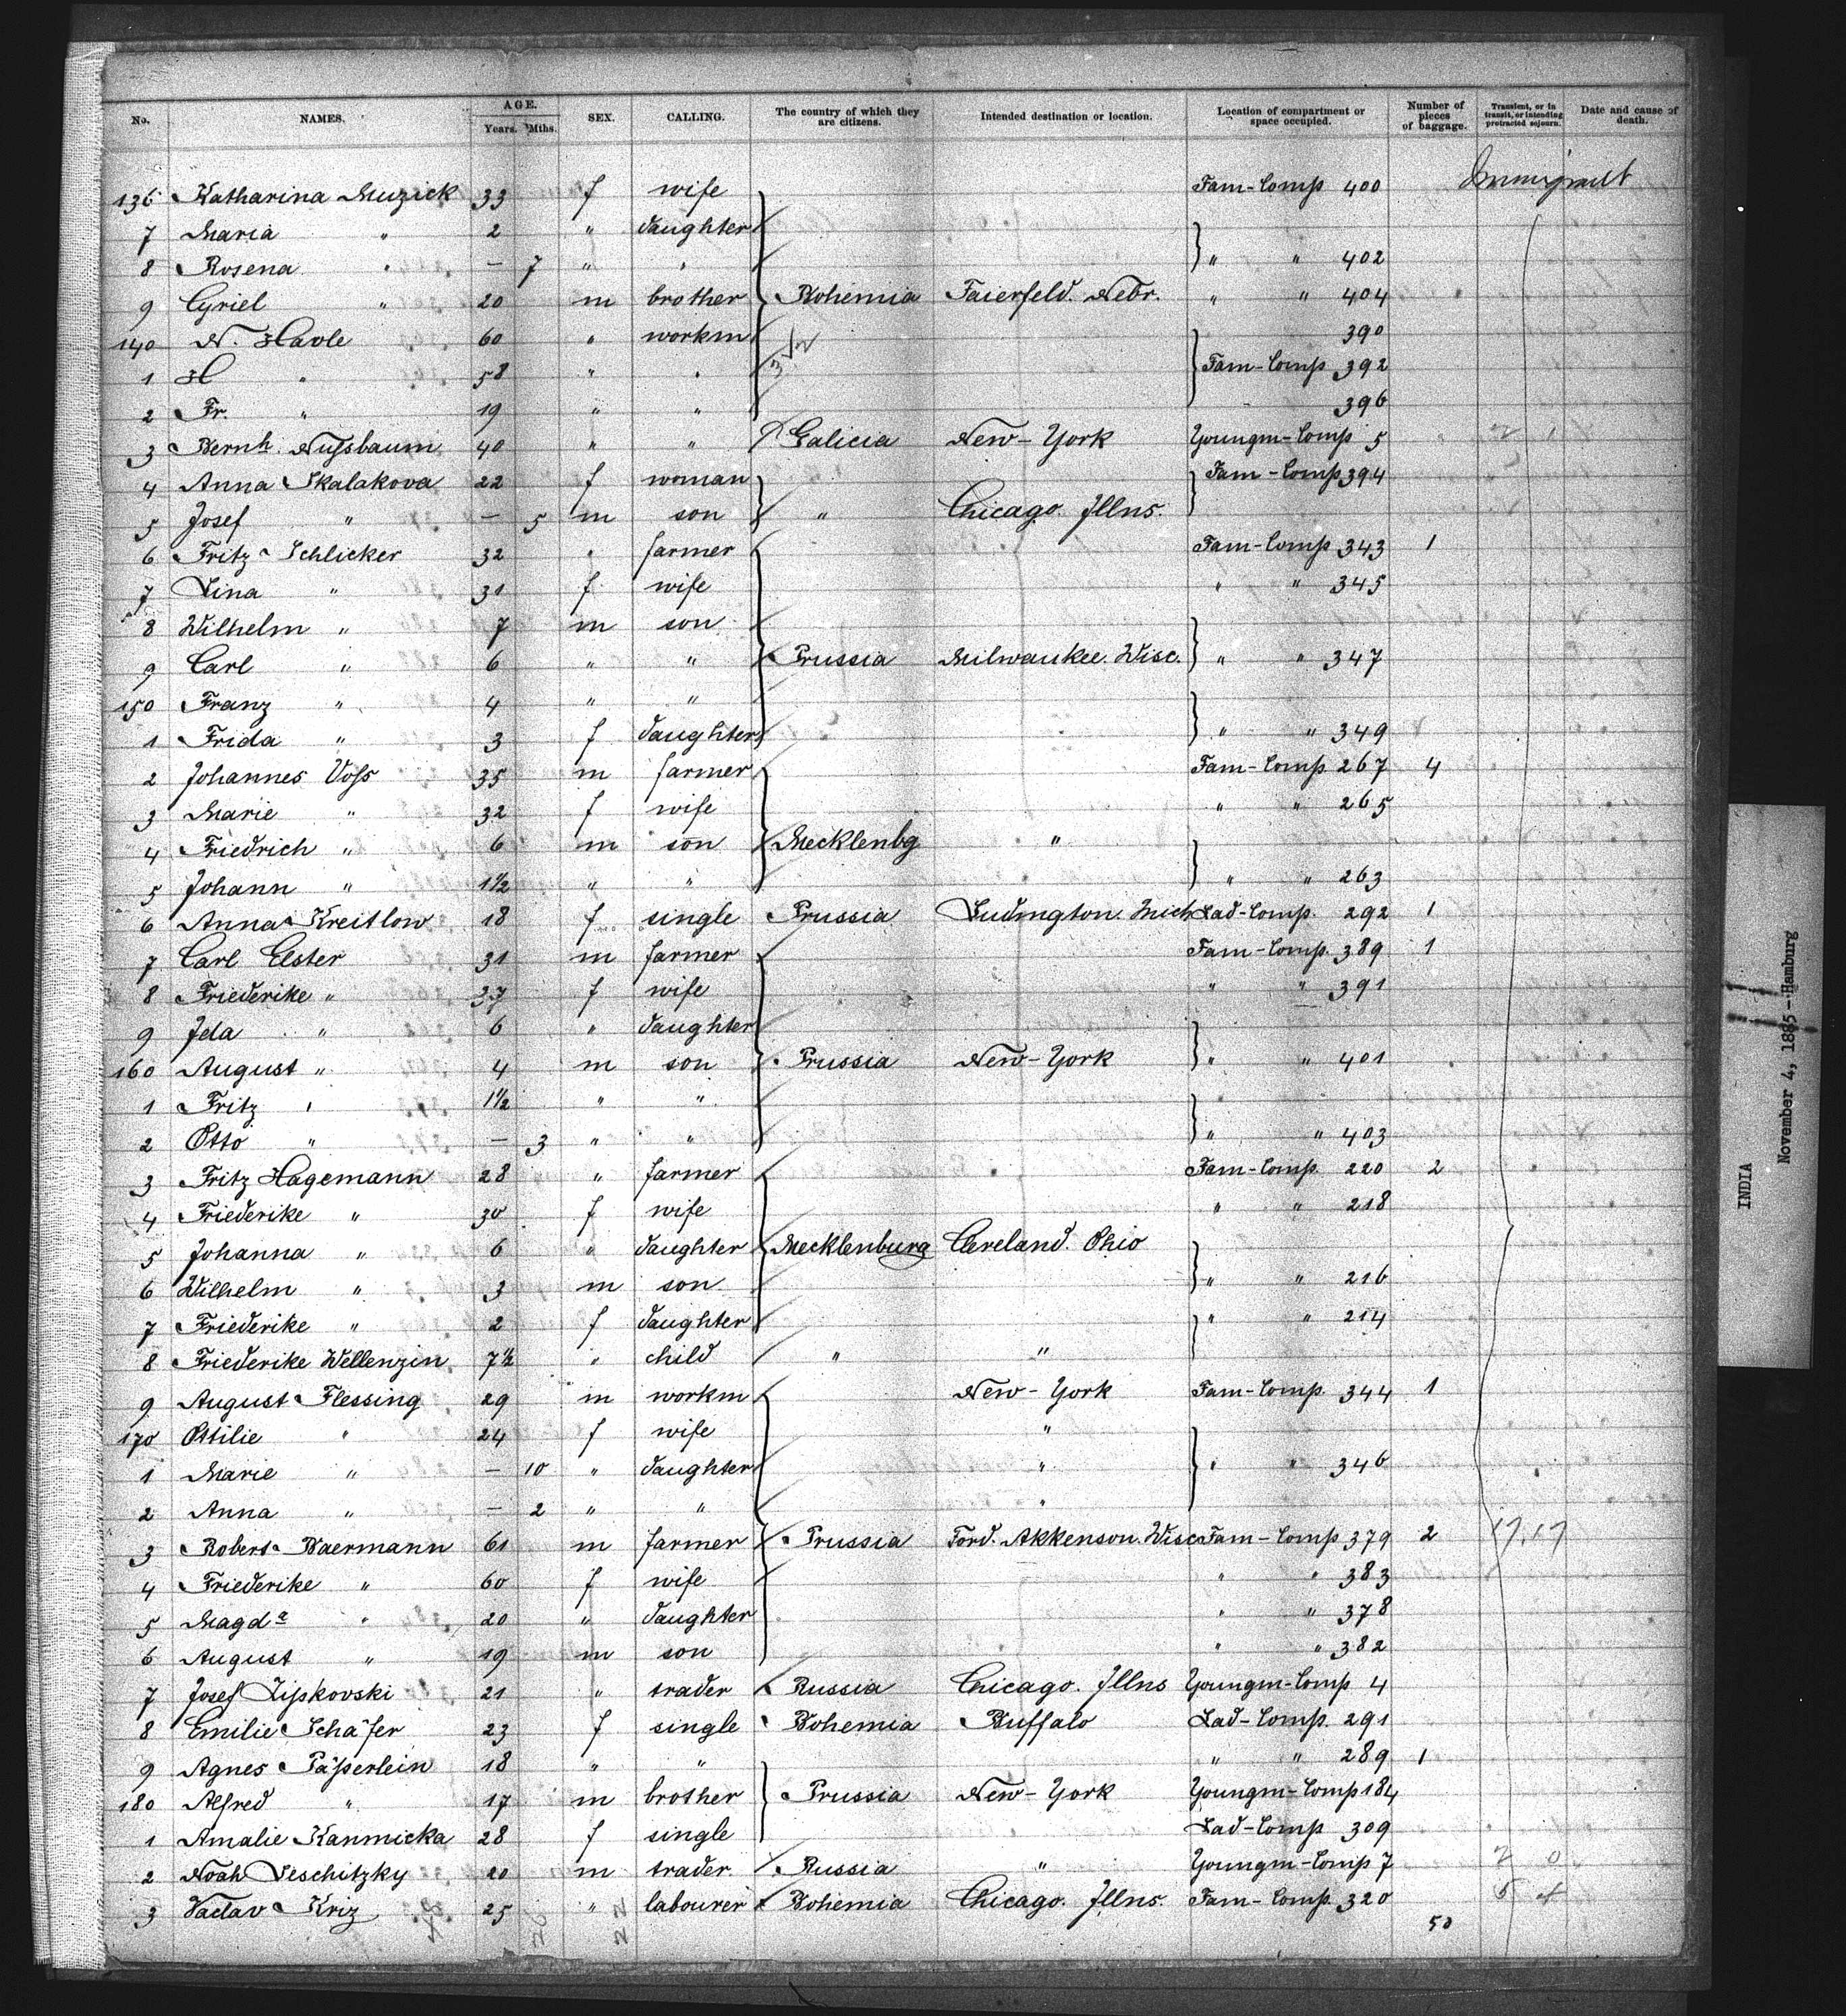 No. NAMES. AGE. Years. Mths. SEX. CALLING. The country of which they are citizens. Intended destination or location. Location of compartment or space occupied. Number of pieces of baggage. Transient, or in transit, or intending protracted sojourn. Date and cause of death.
136 Katharina Muzick 33 f wife Fam-Comp 400 Immigrant
7 Maria " 2 " daughter
8 Rosena " — 7 " " " " 402
9 Cyriel " 20 m brother Bohemia Faierfeld. Nebr. " " 404
140 N. Havle 60 " workm 390
1 H " 58 " " Fam-Comp 392
2 Fr. " 19 " " 396
3 Bernh. Nußbaum 40 " " Galicia New-York Youngm-Comp 5
4 Anna Skalakova 22 f woman Fam-Comp 394
5 Josef " — 5 m son " Chicago. Illns.
6 Fritz Schlicker 32 " farmer Fam-Comp 343 1
7 Lina " 31 f wife " " 345
8 Wilhelm " 7 m son
9 Carl " 6 " " Prussia Milwaukee. Wisc. " " 347
150 Franz " 4 " "
1 Frida " 3 f daughter " " 349
2 Johannes Voß 35 m farmer Fam-Comp 267 4
3 Marie " 32 f wife " " 265
4 Friedrich " 6 m son Mecklenbg "
5 Johann " 1½ " " " " 263
6 Anna Kreitlow 18 f single Prussia Ludington. Mich Lad-Comp. 292 1
7 Carl Elster 31 m farmer Fam-Comp. 389 1
8 Friederike " 37 f wife " " 391
9 Ida " 6 " daughter
160 August " 4 m son Prussia New-York " " 401
1 Fritz " 1½ " "
2 Otto " — 3 " " " " 403
3 Fritz Hagemann 28 " farmer Fam-Comp. 220 2
4 Friederike " 30 f wife " " 218
5 Johanna " 6 " daughter Mecklenburg Cleveland. Ohio
6 Wilhelm " 3 m son " " 216
7 Friederike " 2 f daughter " " 214
8 Friederike Wellenzin 7½ " child " "
9 August Flessing 29 m workm New-York Fam-Comp. 344 1
170 Ottilie " 24 f wife "
1 Marie " — 10 " daughter " " " 346
2 Anna " — 2 " " "
3 Robert Baermann 61 m farmer Prussia Ford. Akkenson. Wisc Fam-Comp 379 2
4 Friederike " 60 f wife " " 383
5 Magda " 20 " daughter " " 378
6 August " 19 m son " " 382
7 Josef Lipkovski 21 " trader Russia Chicago. Illns Youngm-Comp 4
8 Emilie Schäfer 23 f single Bohemia Buffalo Lad-Comp. 291
9 Agnes Päßerlein 18 " " " " 289 1
180 Alfred " 17 m brother Prussia New-York Youngm-Comp 184
1 Amalie Kanmicka 28 f single Lad-Comp 309
2 Noah Leschitzky 20 m trader Russia " Youngm-Comp 7
3 Vaclav Kriz 25 " labourer Bohemia Chicago. Illns. Fam-Comp. 320
50
INDIA
November 4, 1885--Hamburg